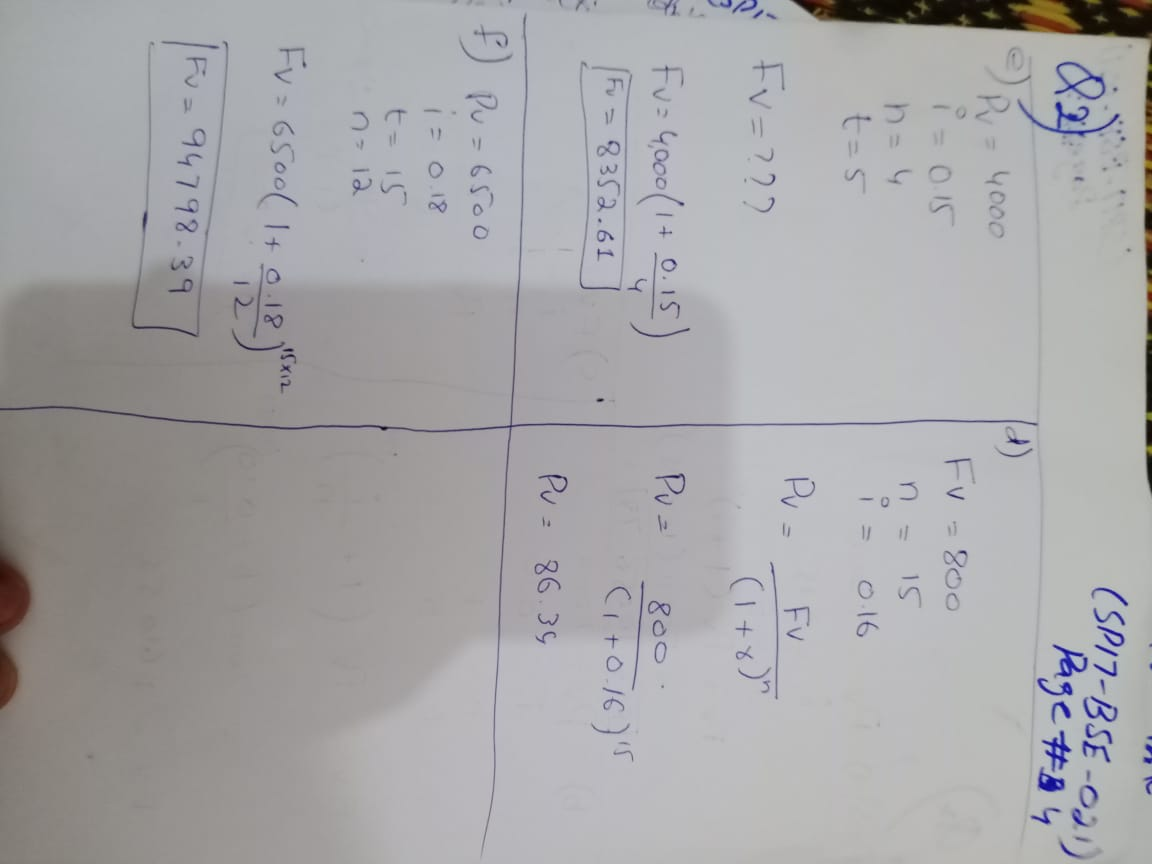 (SP17-BSE-021)
Page # 4
Q2)
e) Pv = 4000
i = 0.15
n = 4
t = 5
Fv = ???
Fv = 4,000(1 + 0.15/4)
Fv = 8352.61
d)
Fv = 800
n = 15
i = 0.16
Pv = Fv/(1+r)^n
Pv = 800/(1+0.16)^15
Pv = 86.34
f) Pv = 6500
i = 0.18
t = 15
n = 12
Fv = 6500(1 + 0.18/12)^15x12
Fv = 94798.39